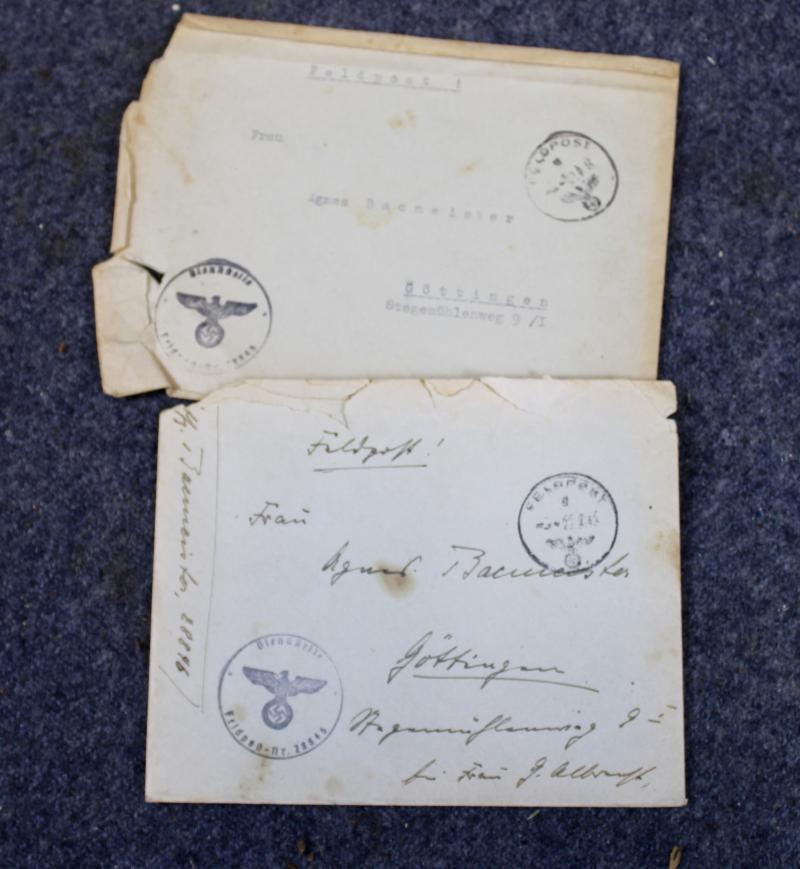 Feldpost !
FELDPOST
Frau
Agnes Bacmeister
Göttingen
Stegemühlenweg 9 /I
Dienststelle
Feldpost-Nr. 28846
Feldpost!
FELDPOST
Frau
Agnes Bacmeister
Göttingen
Stegemühlenweg 9 I
bei Frau G. Albrecht,
Bacmeister, 28846
Dienststelle
Feldpost-Nr. 28846